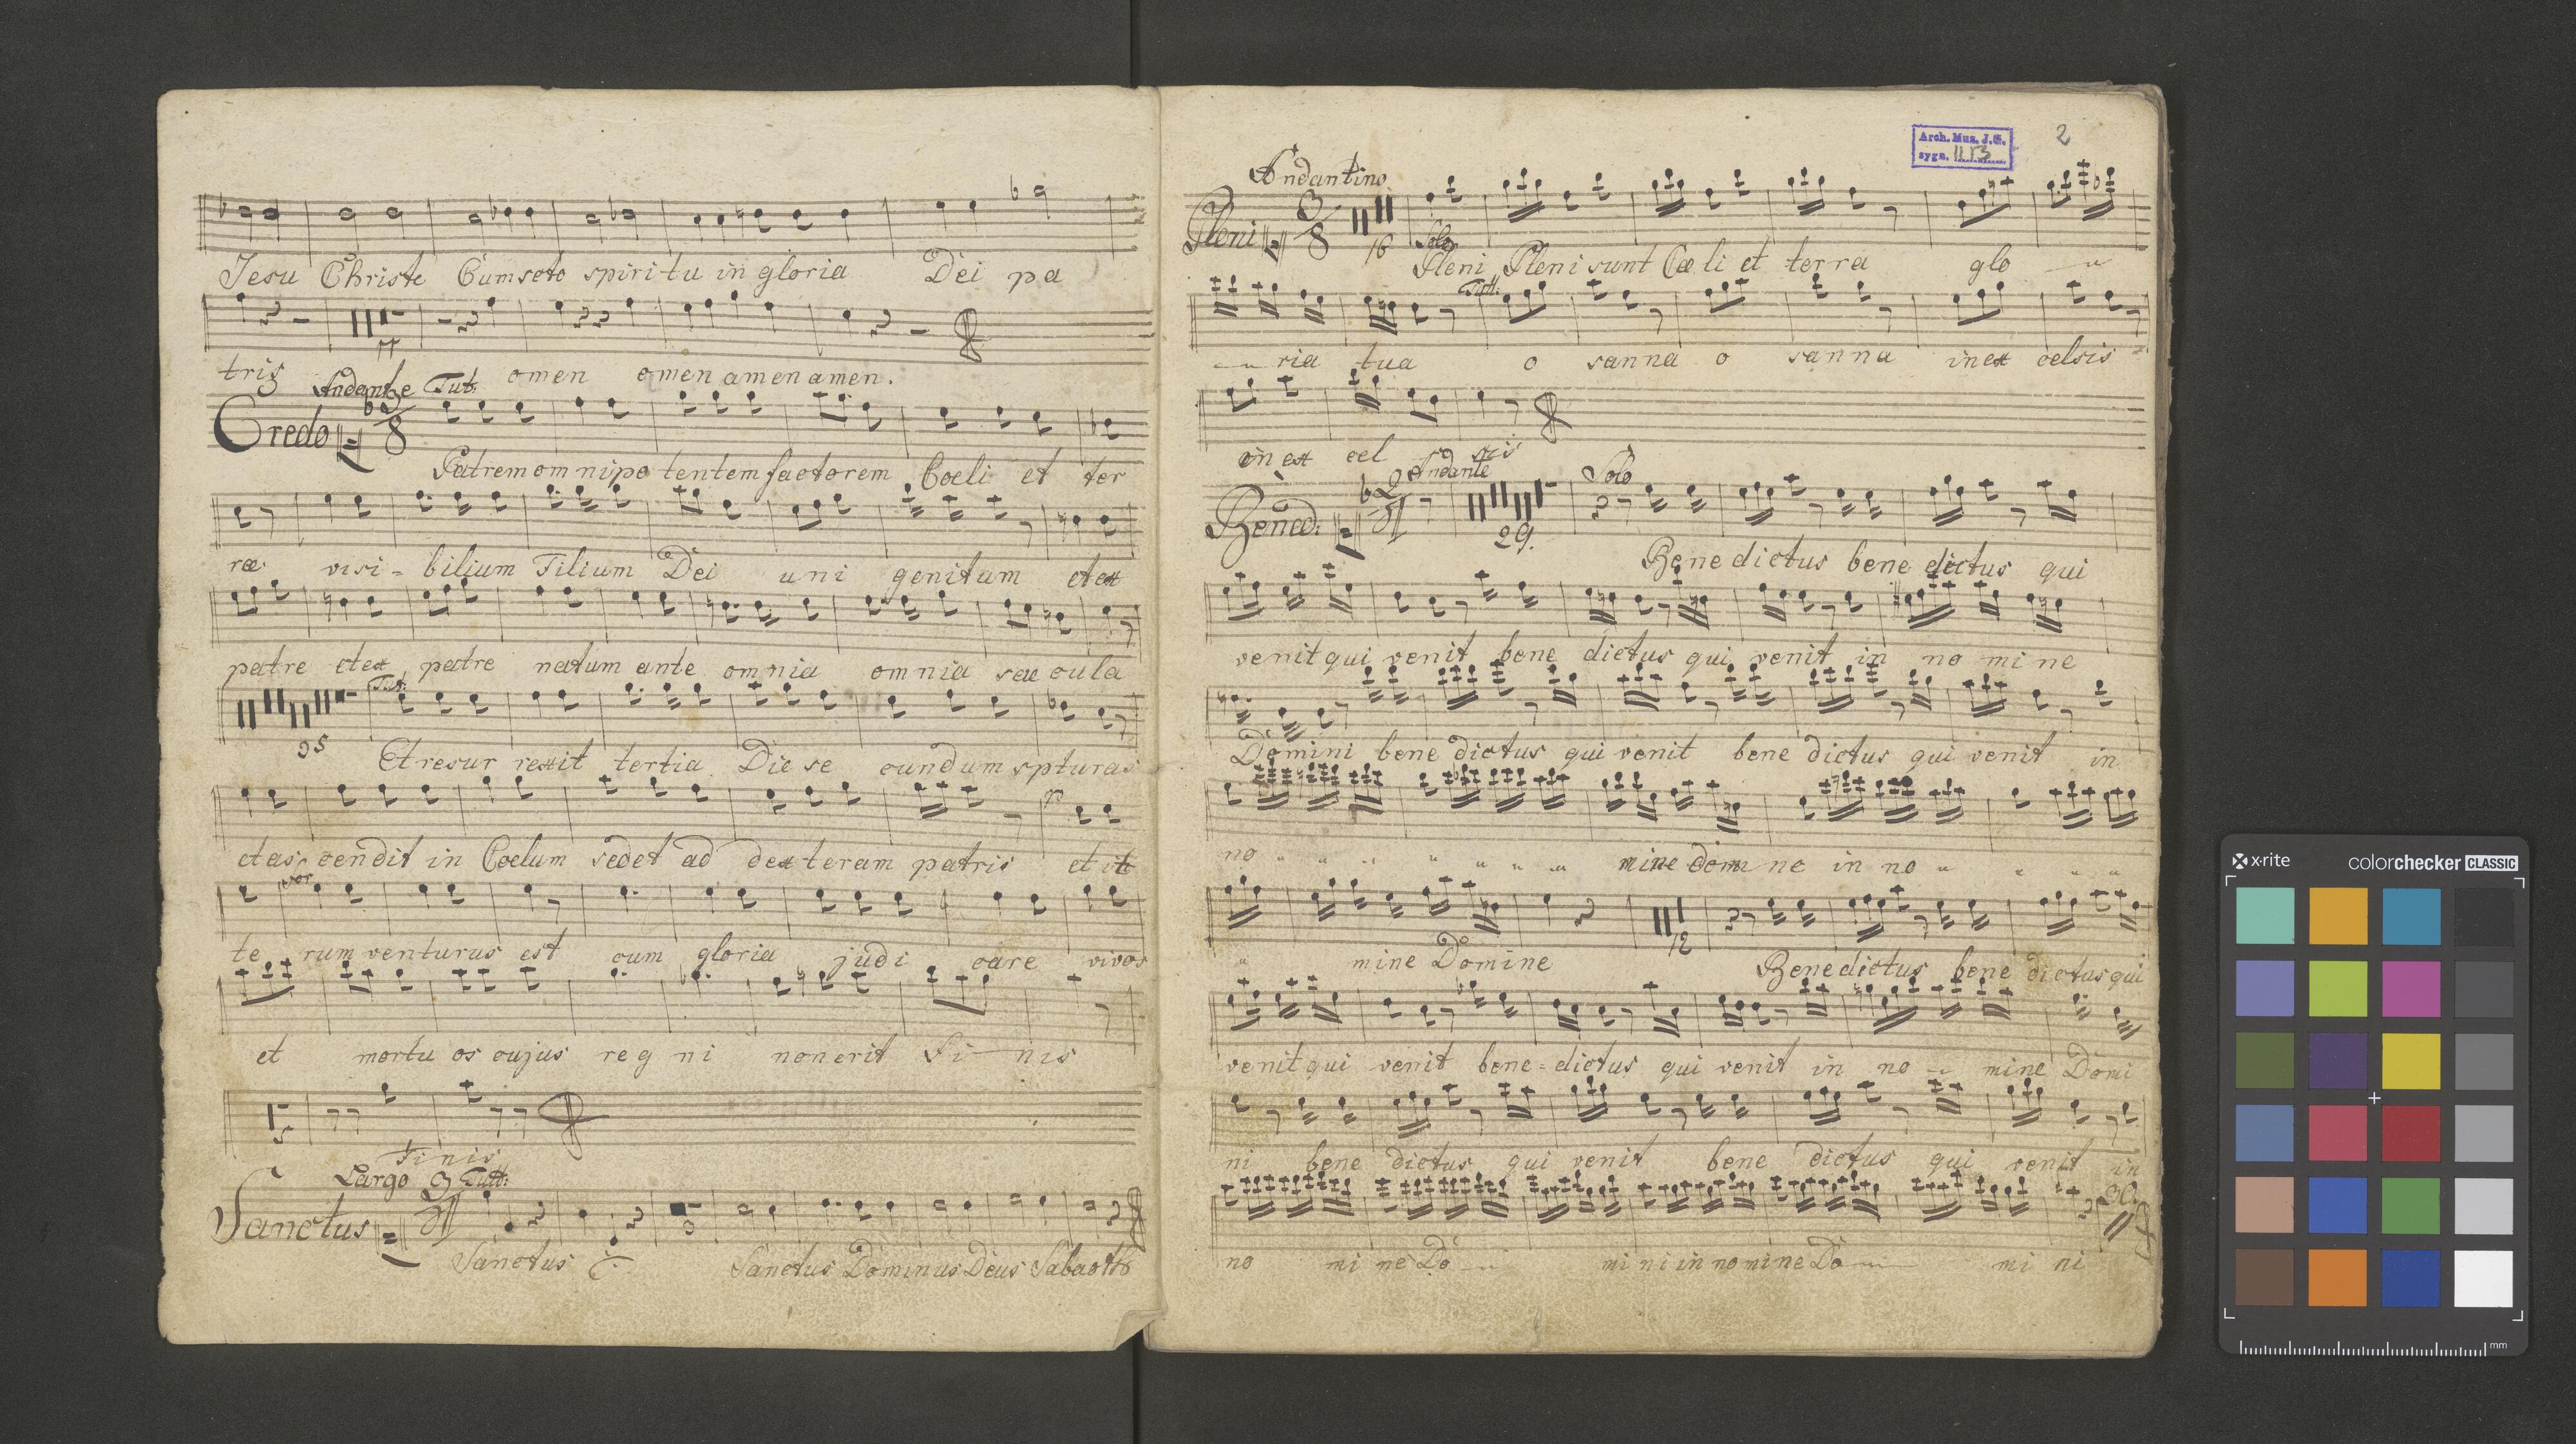 Jesu Christe Cum scto spiritu in gloria Dei pa
tris omen omen amen amen.
Andante Tut:
Credo 3/8
Patrem omnipo tentem factorem Coeli et ter
ræ visi - bilium Filium Dei uni genitum et ex
patre et ex patre natum ante omnia omnia sæ cula
Tut:
35
Et resur rexit tertia Die se cundum spturas
et as cendit in Coelum sedet ad dex teram patris et it
te rum venturus est cum gloria judi care vivos
et mortu os cujus reg ni non erit Fi - nis
Finis
Largo Tutt:
Sanctus
Sanctus Sanctus Dominus Deus Sabaoth
Arch. Mus. J.G.
sygn. II 13
2
Andantino
Pleni 3/8 16 Solo
Pleni Pleni sunt Cœ li et terra glo
Tutt:
ria tua o sanna o sanna in ex celsis
in ex cel sis
Andante Solo
Bened: 2/4 29.
Benedictus bene dictus qui
venit qui venit bene dictus qui venit in no mi ne
Domini bene dictus qui venit bene dictus qui venit in
no mine domi ne in no
12
mine Domine Benedictus bene dictus qui
venit qui venit bene = dictus qui venit in no mine Domi
ni bene dictus qui venit bene dictus qui venit in
no mi ne Do mi ni in no mi ne Do mi ni